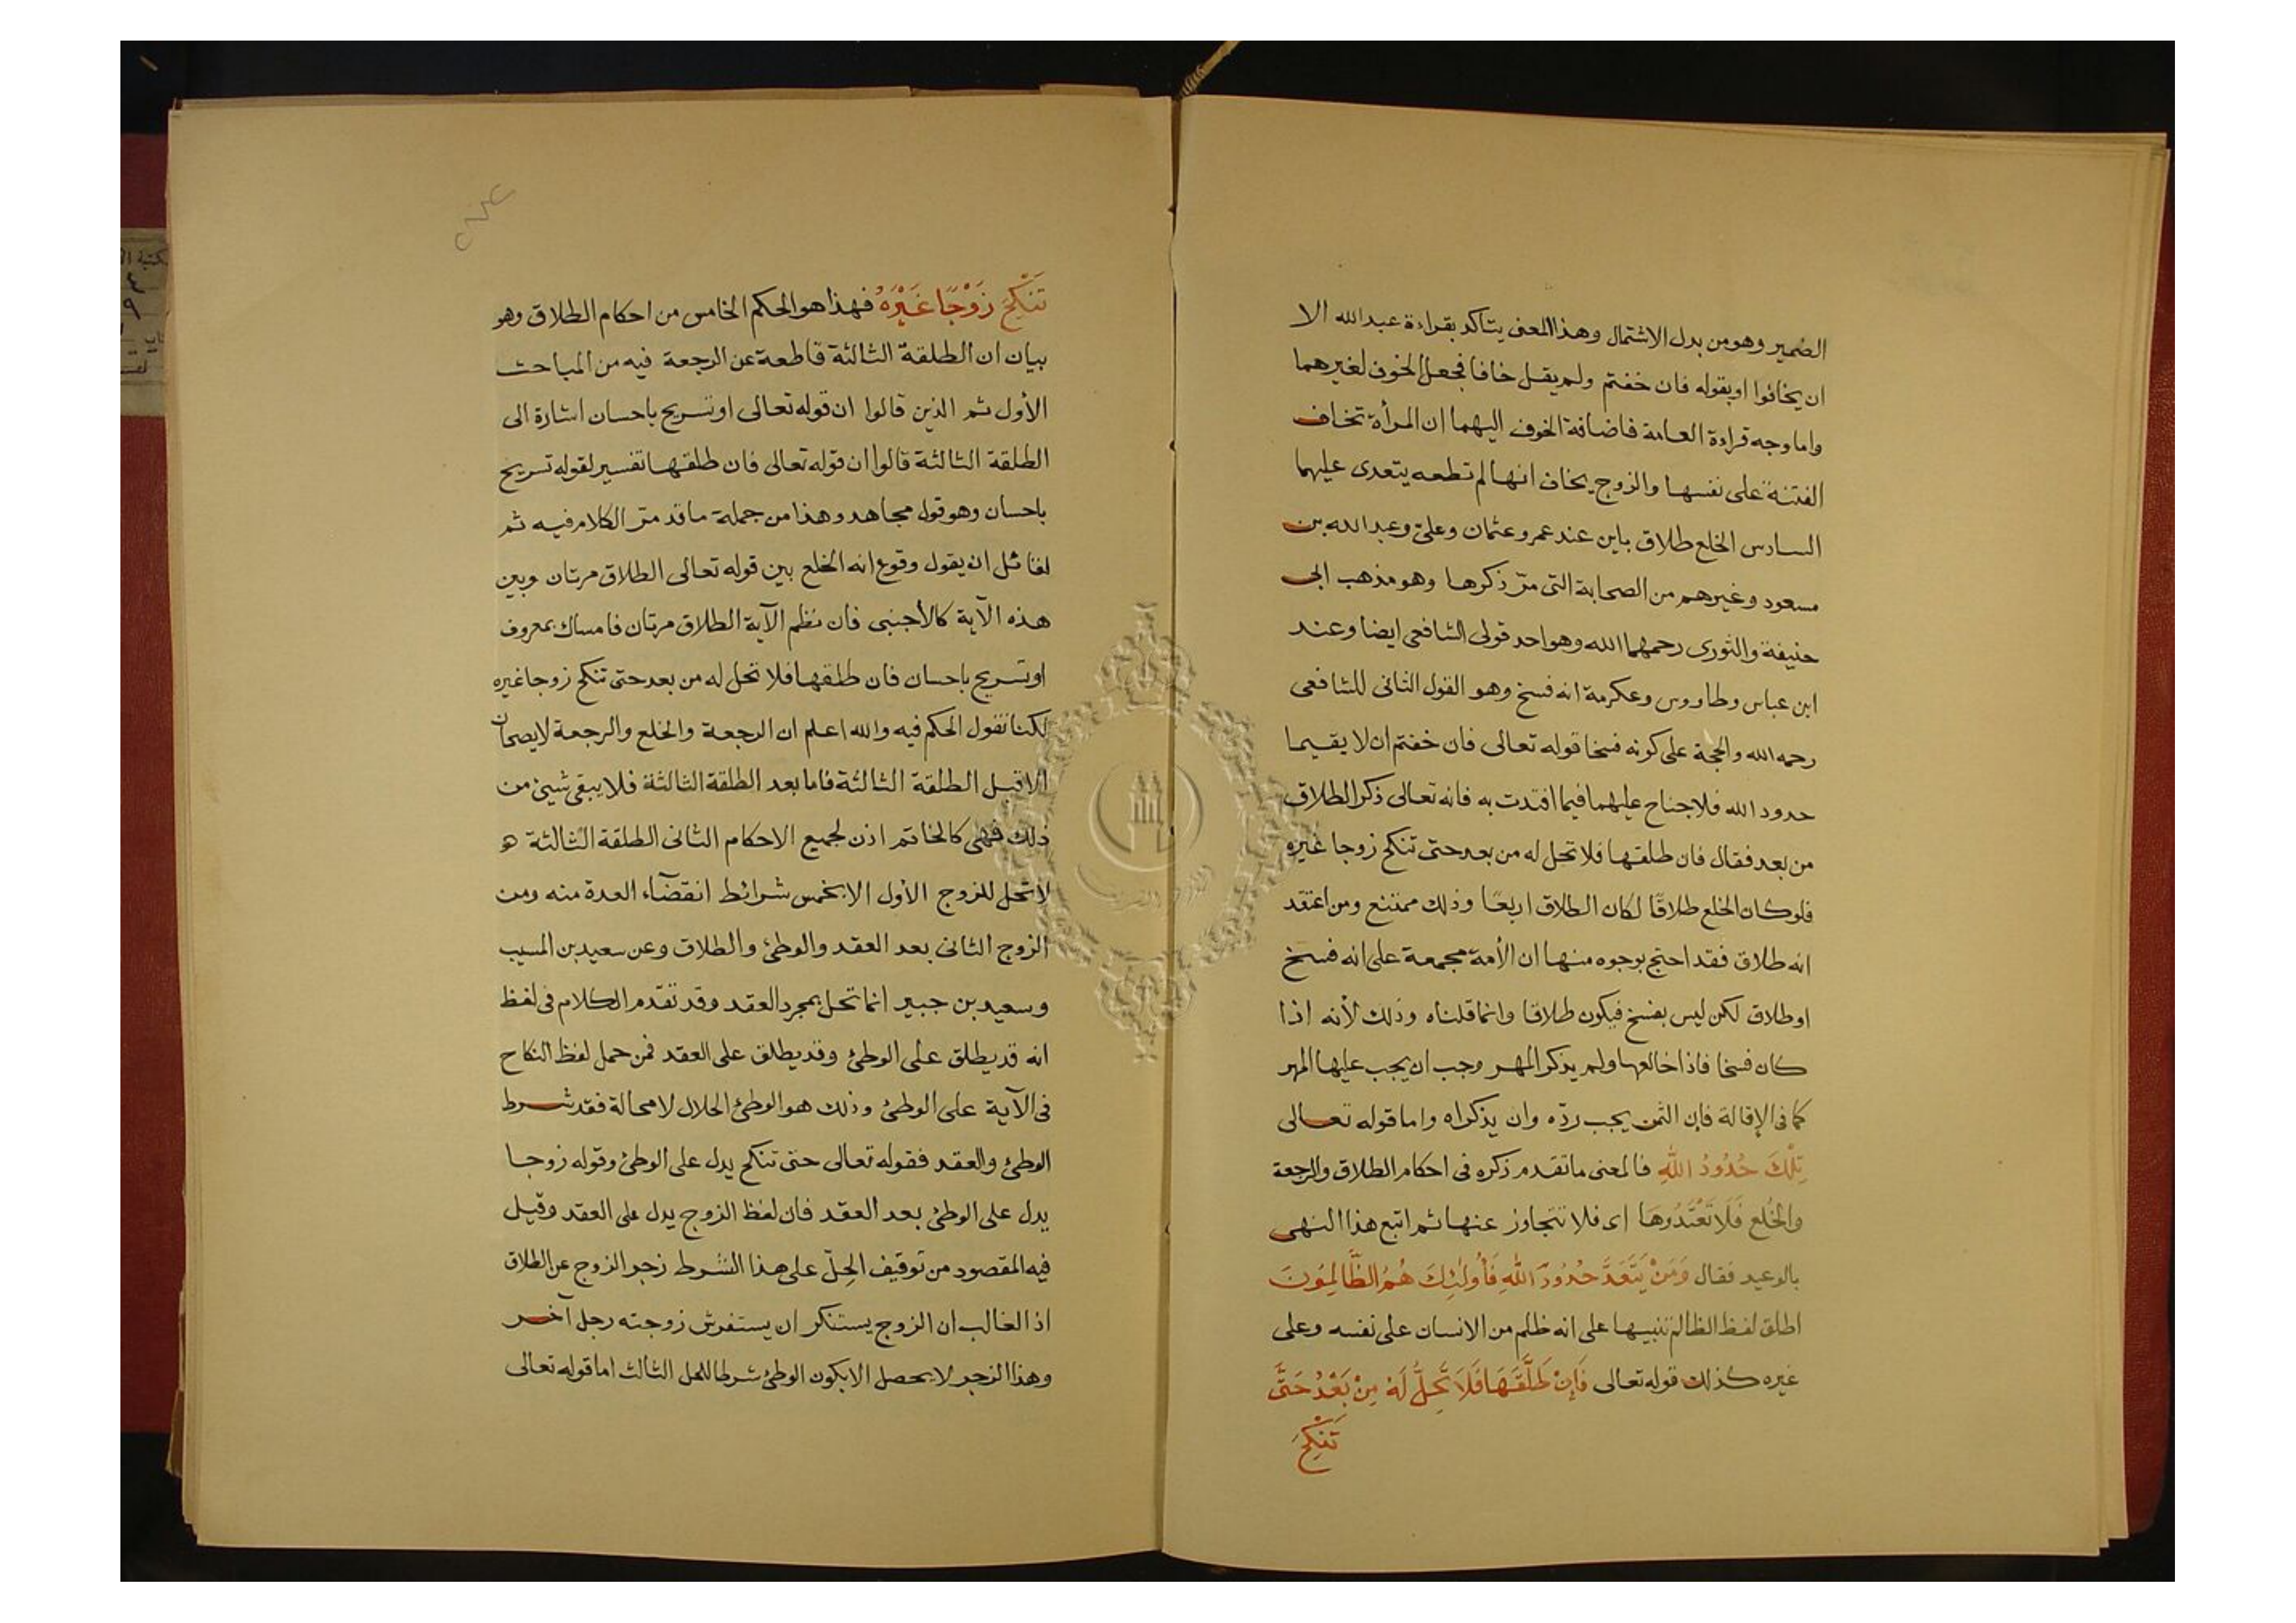 الضمير وهو من بدل الاشتمال وهذا المعنى يتاكد بقراءة عبد الله الا
ان يخافوا او بقوله فان خفتم ولم يقل خافا فجعل الخوف لغيرهما
واما وجه قراءة العامة فاضافة الخوف اليهما ان المرأة تخاف
الفتنة على نفسها والزوج يخاف انها لم تطعه يتعدى عليهما
السادس الخلع طلاق باين عند عمر وعثمان وعلىّ وعبد الله بن
مسعود وغيرهم من الصحابة التى مرّ ذكرها وهو مذهب ابى
حنيفة والثورى رحمهما الله وهو احد قولى الشافعى ايضا وعند
ابن عباس وطاروس وعكرمة انه فسخ وهو القول الثانى للشافعى
رحمه الله والحجة على كونه فسخا قوله تعالى فان خفتم ان لا يقيما
حدود الله فلا جناح عليهما فيما افتدت به فانه تعالى ذكر الطلاق
من بعد فقال فان طلقها فلا تحل له من بعد حتى تنكح زوجا غيره
فلو كان الخلع طلاقًا لكان الطلاق اربعًا وذلك ممتنع ومن اعتقد
انه طلاق فقد احتج بوجوه منها ان الأمة مجمعة على انه فسخ
او طلاق لكن ليس بفسخ فيكون طلاقا وانما قلناه وذلك لأنه اذا
كان فسخا فاذا خالعها ولم يذكر المهر وجب ان يجب عليها المهر
كما فى الإقالة فإن الثمن يجب ردّه وان يذكراه واما قوله تعالى
تِلْكَ حُدُودُ اللهِ فالمعنى ما تقدم ذكره فى احكام الطلاق والرجعة
والخُلع فَلَا تَعْتَدُوهَا اى فلا تتجاوز عنها ثم اتبع هذا النهى
بالوعيد فقال وَمَنْ يَتَعَدَّ حُدُودَ اللهِ فَأُولٰئِكَ هُمُ الظَّالِمُونَ
اطلق لفظ الظالم تنبيها على انه ظلم من الانسان على نفسه وعلى
غيره كذلك قوله تعالى فَإِنْ طَلَّقَهَا فَلَا تَحِلُّ لَهُ مِنْ بَعْدُ حَتَّى
تَنْكِحَ
تَنْكِحَ زَوْجًا غَيْرَهُ فهذا هو الحكم الخامس من احكام الطلاق وهو
بيان ان الطلقة الثالثة قاطعة عن الرجعة فيه من المباحث
الأول ثم الذين قالوا ان قوله تعالى او تسريح باحسان اشارة الى
الطلقة الثالثة قالوا ان قوله تعالى فان طلقها تفسير لقوله تسريح
باحسان وهو قول مجاهد وهذا من جملة ما قد مرّ الكلام فيه ثم
لقائل ان يقول وقوع انه الخلع بين قوله تعالى الطلاق مرتان وبين
هذه الآية كالأجنبى فان نظم الآية الطلاق مرتان فامساك بمعروف
او تسريح باحسان فان طلقها فلا تحل له من بعد حتى تنكح زوجا غيره
لكنا نقول الحكم فيه والله اعلم ان الرجعة والخلع والرجعة لا يصحان
الا قبل الطلقة الثالثة فاما بعد الطلقة الثالثة فلا يبقى شيئ من
ذلك فهى كالخاتم اذن لجميع الاحكام الثانى الطلقة الثالثة هو
لا تحل للزوج الأول الا بخمس شرائط انقضآء العدة منه ومن
الزوج الثانى بعد العقد والوطئ والطلاق وعن سعيد بن المسيب
وسعيد بن جبير انما تحل بمجرد العقد وقد تقدم الكلام فى لفظ
انه قد يطلق على الوطئ وقد يطلق على العقد فمن حمل لفظ النكاح
فى الآية على الوطئ وذلك هو الوطئ الحلال لا محالة فقد شرط
الوطئ والعقد فقوله تعالى حتى تنكح يدل على الوطئ وقوله زوجا
يدل على الوطئ بعد العقد فان لفظ الزوج يدل على العقد وقيل
فيه المقصود من توقيف الحِلّ على هذا الشرط زجر الزوج عن الطلاق
اذ الغالب ان الزوج يستنكر ان يستفرش زوجته رجل آخر
وهذا الزجر لا يحصل الا بكون الوطئ شرطا للحل الثالث اما قوله تعالى